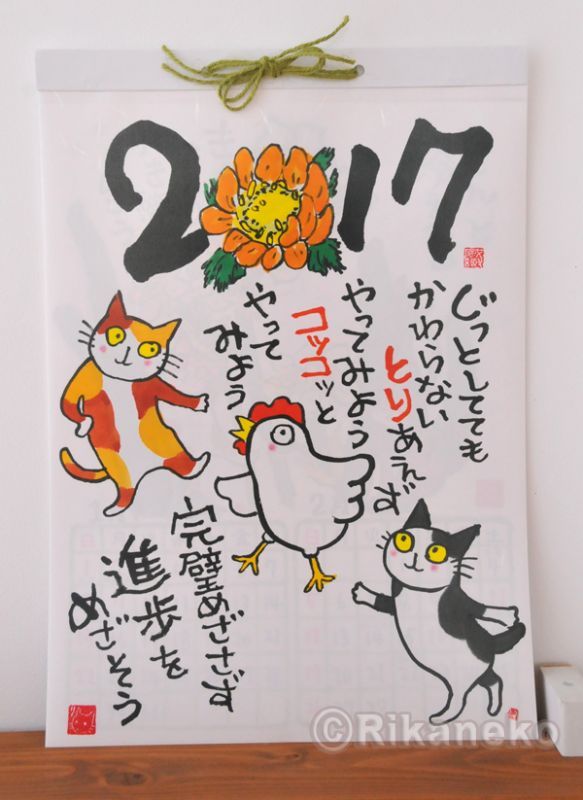 2017
じっとしてても
かわらない
とりあえず
やってみよう
コッコッと
やって
みよう
完璧めざさず
進歩を
めざそう
©Rikaneko